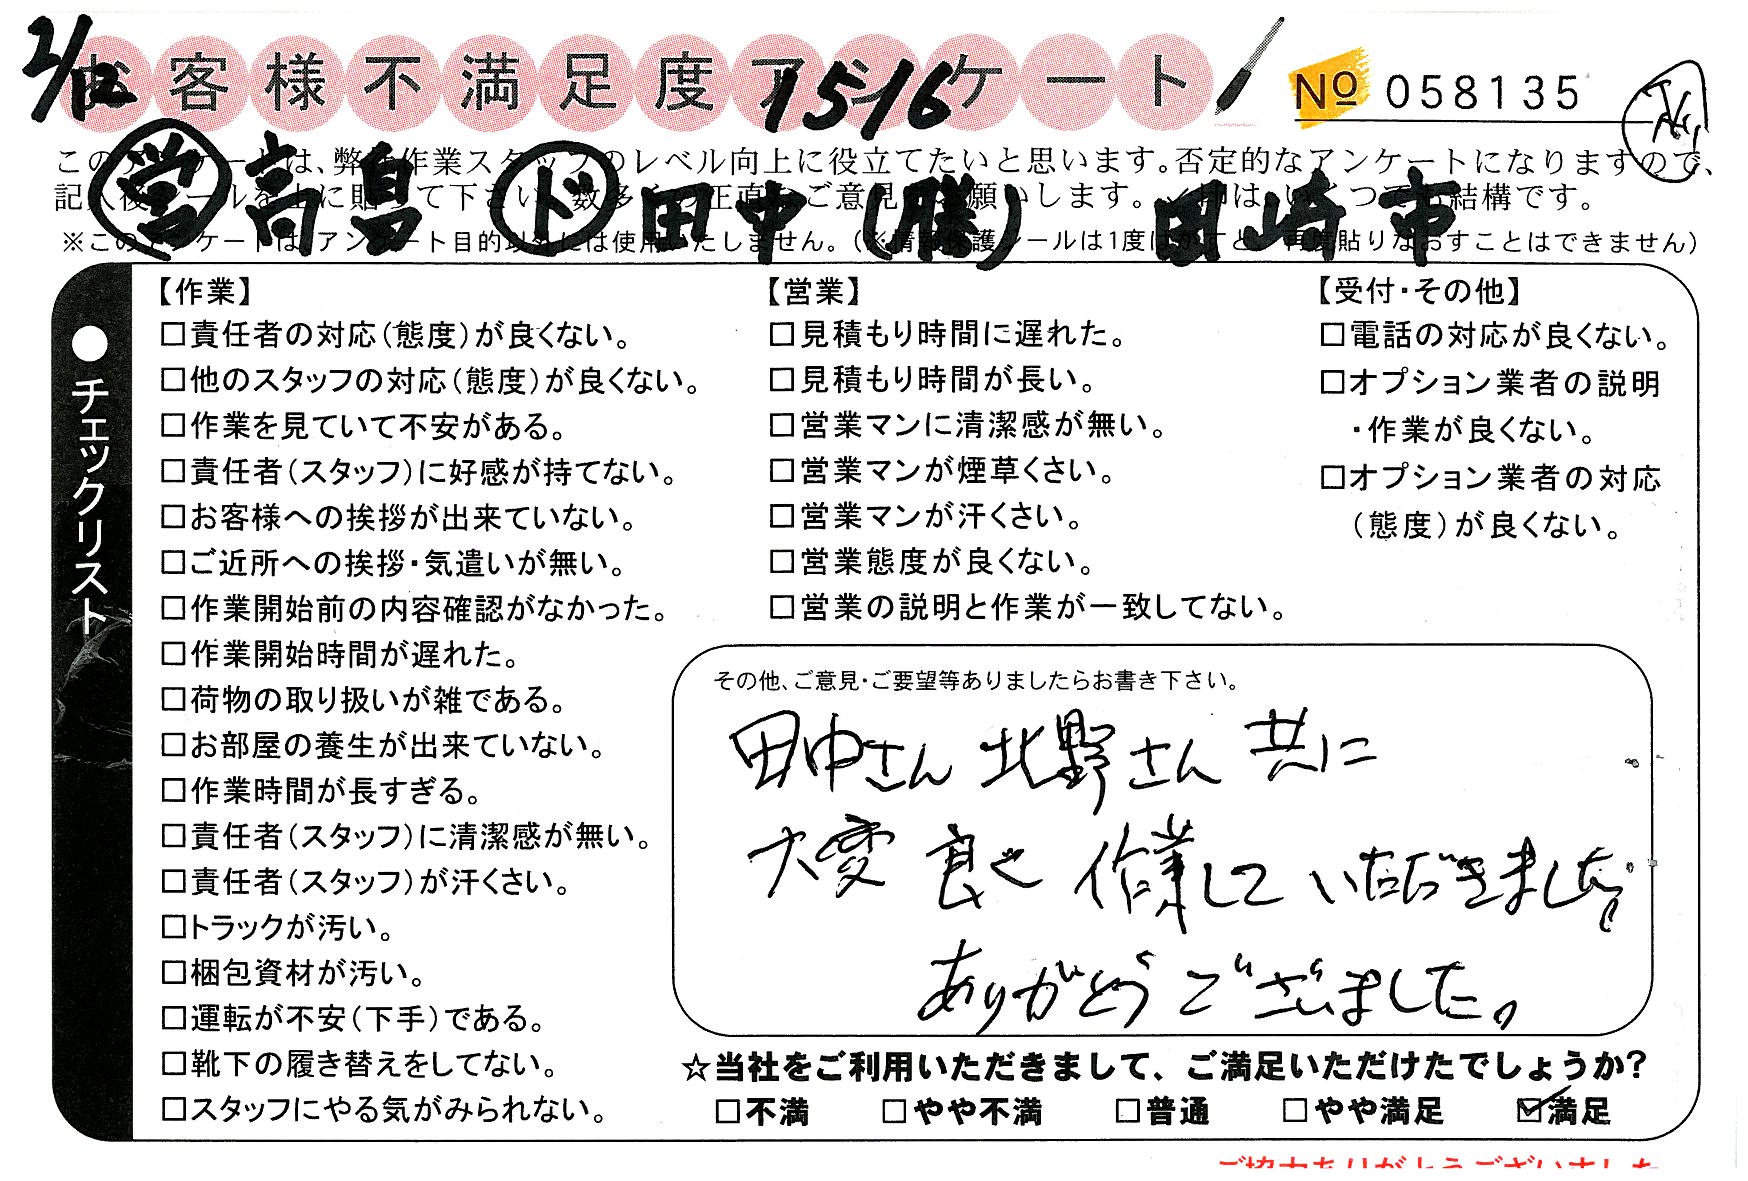 2/12
お客様不満足度アンケート
1516
No 058135
このアンケートは、弊社作業スタッフのレベル向上に役立てたいと思います。否定的なアンケートになりますので、
記入後シールを上に貼って下さい。数多くの正直なご意見お願いします。✓印は、いくつでも結構です。
営 高畠 ド 田中(勝) 岡崎市
※このアンケートは、アンケート目的以外には使用いたしません。(※情報保護シールは1度はがすと、再度貼りなおすことはできません)
●チェックリスト
【作業】
□責任者の対応(態度)が良くない。
□他のスタッフの対応(態度)が良くない。
□作業を見ていて不安がある。
□責任者(スタッフ)に好感が持てない。
□お客様への挨拶が出来ていない。
□ご近所への挨拶・気遣いが無い。
□作業開始前の内容確認がなかった。
□作業開始時間が遅れた。
□荷物の取り扱いが雑である。
□お部屋の養生が出来ていない。
□作業時間が長すぎる。
□責任者(スタッフ)に清潔感が無い。
□責任者(スタッフ)が汗くさい。
□トラックが汚い。
□梱包資材が汚い。
□運転が不安(下手)である。
□靴下の履き替えをしてない。
□スタッフにやる気がみられない。
【営業】
□見積もり時間に遅れた。
□見積もり時間が長い。
□営業マンに清潔感が無い。
□営業マンが煙草くさい。
□営業マンが汗くさい。
□営業態度が良くない。
□営業の説明と作業が一致してない。
【受付・その他】
□電話の対応が良くない。
□オプション業者の説明
・作業が良くない。
□オプション業者の対応
(態度)が良くない。
その他、ご意見・ご要望等ありましたらお書き下さい。
田中さん 北野さん 共に
大変良く作業していただきました。
ありがとうございました。
☆当社をご利用いただきまして、ご満足いただけたでしょうか?
□不満 □やや不満 □普通 □やや満足 ☑満足
ご協力ありがとうございました